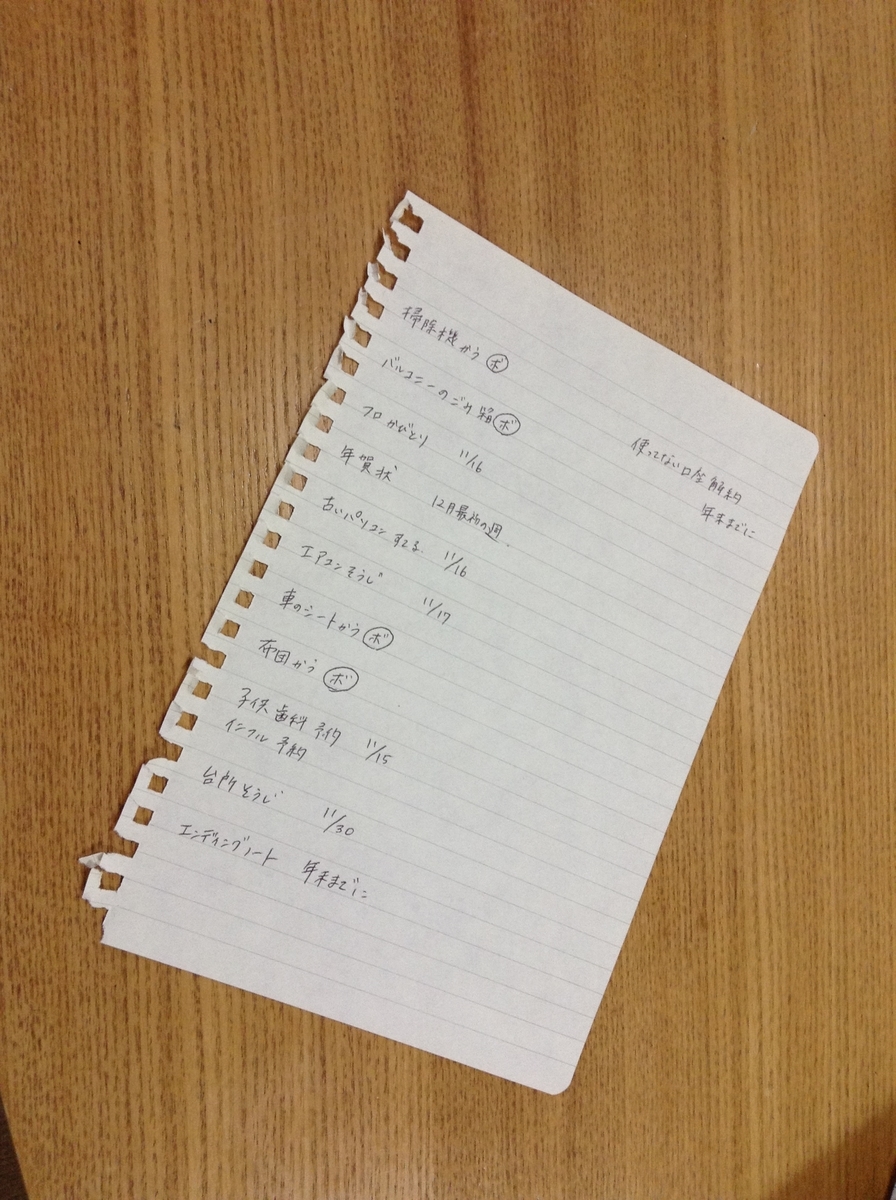 掃除機かう ㋭゙
バルコニーのゴミ箱 ㋭゙
フロかびとり 11/16
年賀状 12月最初の週.
古いパソコンすてる. 11/16
エアコンそうじ 11/17
車のシートかう ㋭゙
布団かう ㋭゙
子供歯科予約 11/15
インフル予約
台所そうじ 11/30
エンディングノート 年末までに
使ってない口座解約
年末までに